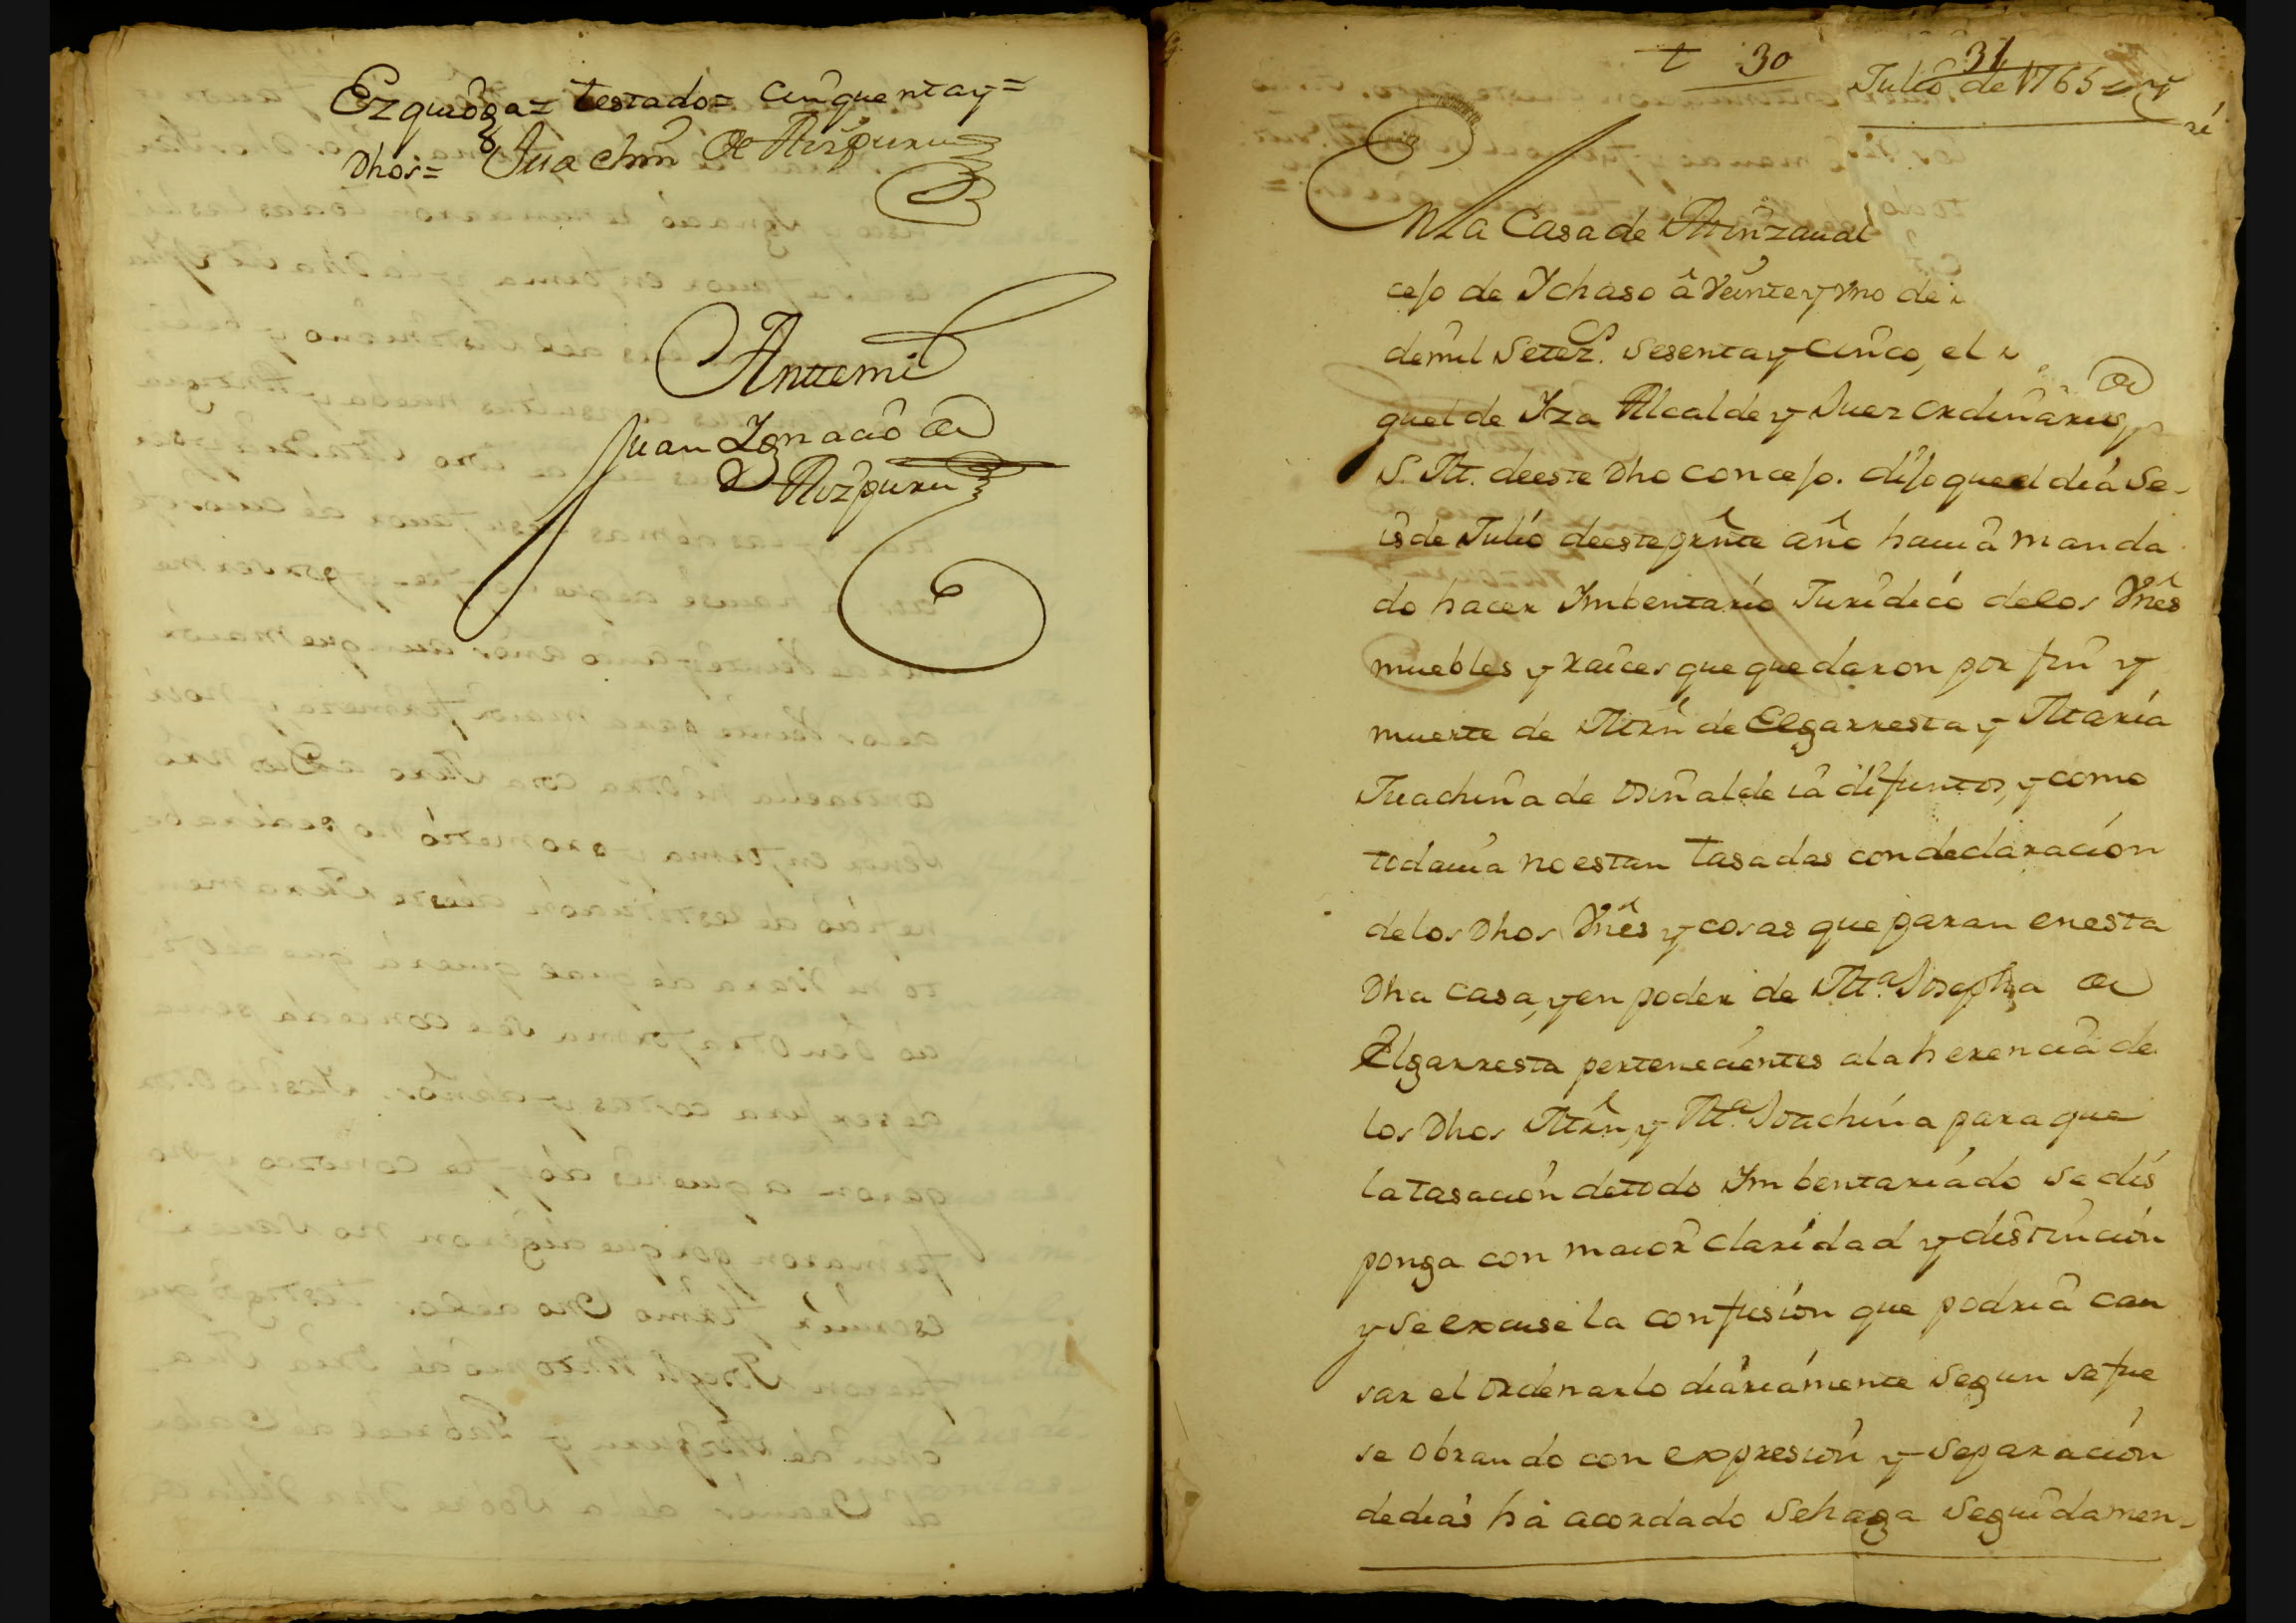 Ezquioga = testado = cinquenta y =
Dhos = Juachin de Aizpuru
Antemi
Juan Ignacio de
Aizpuru
t 30
31
Julio de 1765
En la Casa de
cejo de Ychaso â veinte y uno de
de mil Setez.s Sesenta y cinco, el
guel de Yza Alcalde y Juez ordinario por
S. M. de este Dho concejo. dijo que el dia Se-
is de Julio de este prñte año hauia manda
do hacer Imbentario Juridico de los Vnês
muebles y raices que quedaron por fin y
muerte de Mrñ de Elgarresta y Maria
Juachina de Osinalde iâ difuntos, y como
todauia no estan tasadas con declaracion
de los Dhos Vnês y cosas que paran en esta
Dha casa, y en poder de M.a Josepha de
Elgarresta pertenecientes a la herencia de
los Dhos Mrñ, y M.a Joachina para que
la tasacion de todo Imbentariado se dis
ponga con maior claridad y distincion
y se excuse la confusion que podria cau
sar el ordenarlo diariamente segun se fue
se obrando con expresion y separacion
de dias ha acordado se haga seguidamen-